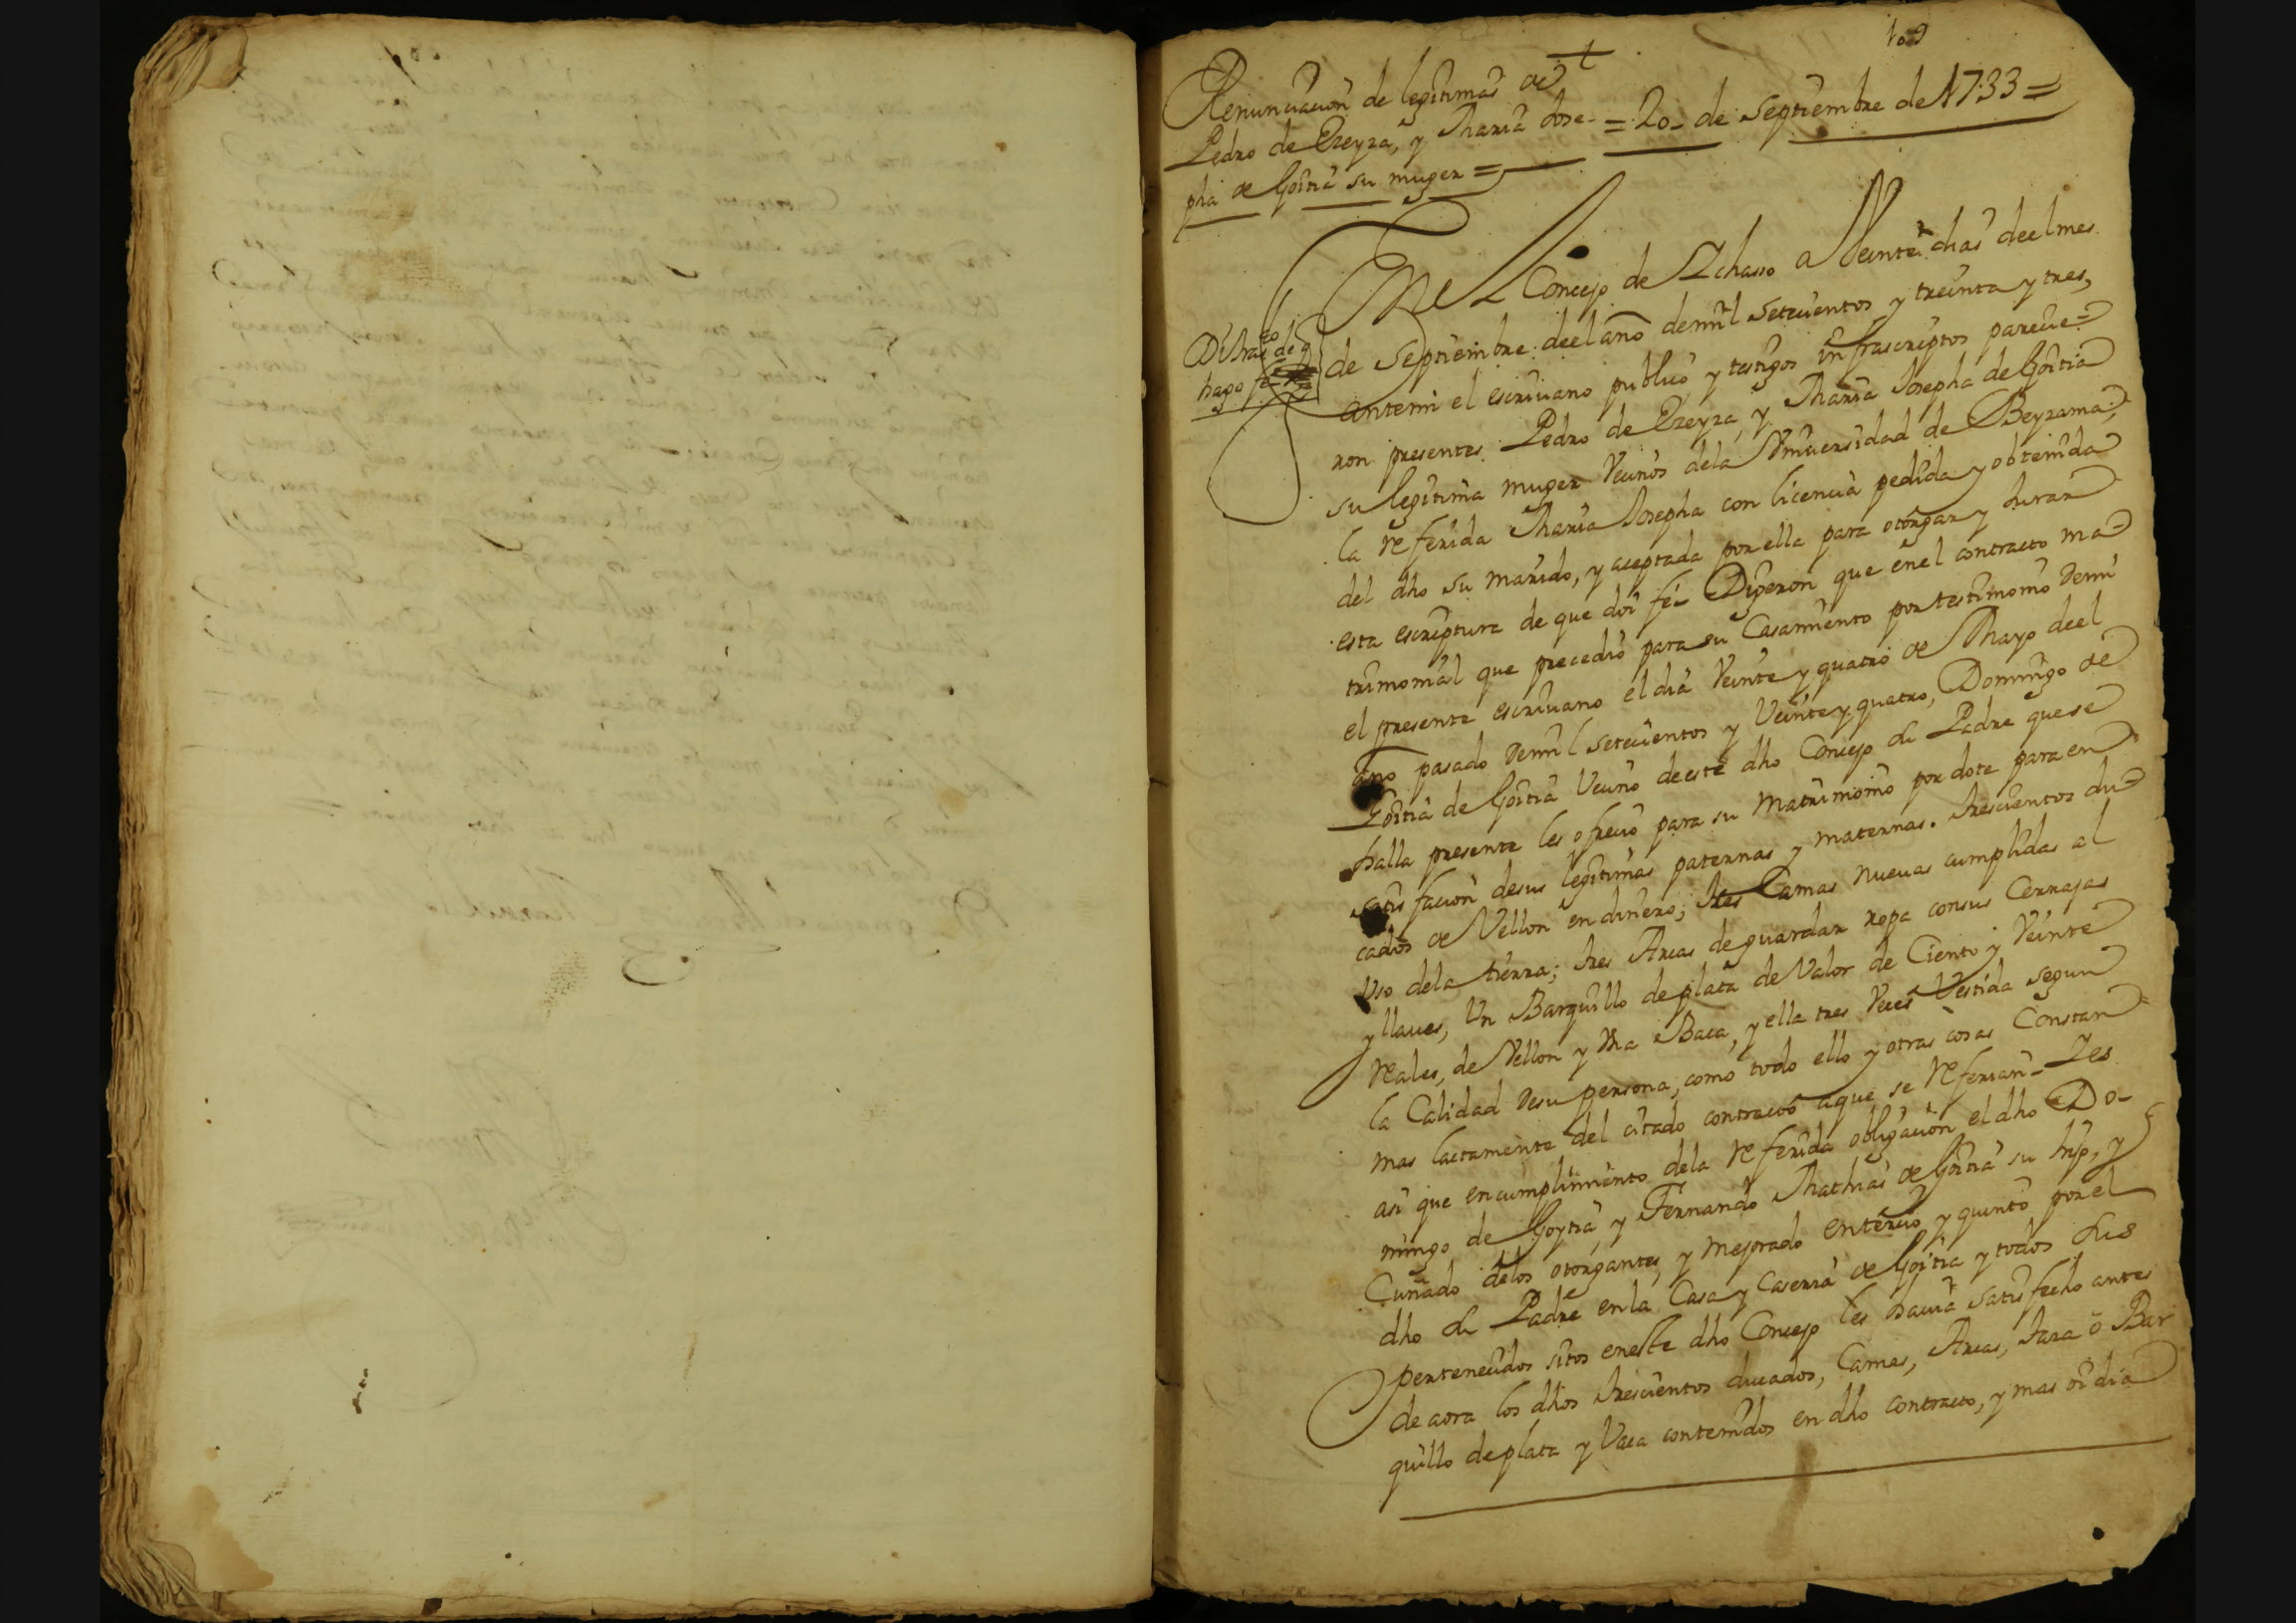 109
Renunciacion de legitimas de
Pedro de Ereyza, y Maria Jose- = 20- de Septiembre de 1733 =
pha de Goitia su muger =
En el Concejo de Ichasso a Veinte dias deel mes
de Septiembre deel año de mil Setecientos y treinta y tres,
antemi el escriuano publico y testigos infrascriptos parecie=
ron presentes Pedro de Ereyza, y Maria Josepha de Goitia
su legitima muger Vecinos dela Vniuersidad de Beyzama;
la referida Maria Josepha con licencia pedida y obtenida
del dho su marido, y aceptada por ella para otorgar y Jurar
esta escriptura de que doi fé- Digeron que enel contracto ma=
trimonial que precedio para su Casamiento por testimonio demi
el presente escriuano el dia Veinte y quatro de Mayo deel
año pasado demil Setecientos y Veinte y quatro, Domingo de
Goitia de Goitia Vecino deeste dho Concejo su Padre quese
halla presente les ofrecio para su Matrimonio por dote para en
satisfacion desus legitimas paternas y maternas. trescientos du=
cados de Vellon en dinero; tres Camas nueuas cumplidas al
Vso dela tierra; tres Arcas de guardar ropa consus Cerrajas
y llaues, Un Barquillo de plata de Valor de Ciento y Veinte
reales, de Vellon y Vna Baca, y ella tres Veces Vestida segun
la Calidad desu persona, como todo ello y otras cosas Constan
mas lactamente del citado contracto aque se referian- Y es
asi que en cumplimiento dela referida obligacion el dho Do-
mingo de Goytia, y Fernando Mathias de Goitia su hijo, y
Cuñado delos otorgantes, y mejorado en tercio y quinto por el
dho su Padre en la Casa y Caseria de Goitia y todos sus
pertenecidos sitos eneste dho Concejo les hauia satisfecho antes
de aora los dhos trescientos ducados, Camas, Arcas, Jara o Bar
quillo de plata y Vaca contenidos en dho contracto, y mas oi dia
hago fe